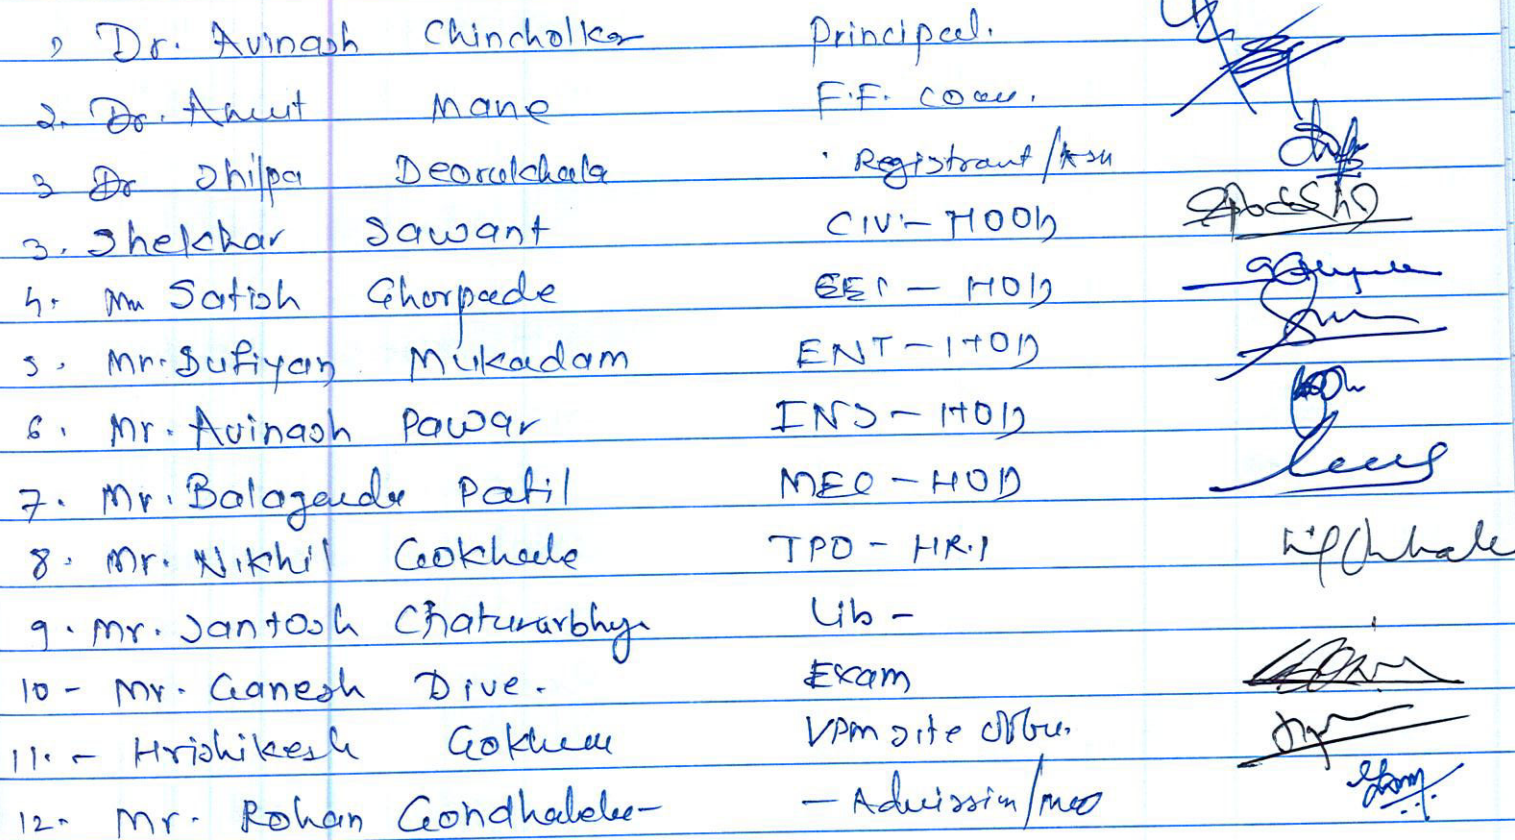 1) Dr. Avinash Chincholkar Principal.
2. Dr. Amit Mane F.F. coor.
3 Dr Shilpa Registrant /
3. Shekhar Sawant CIV - HOD
4. Mr Satish Ghorpade EEE - HOD
5. Mr. Sufiyan Mukadam ENT - HOD
6. Mr. Avinash Pawar INS - HOD
7. Mr. Balagauda Patil MEC - HOD
8. Mr. Nikhil Gokhale TPO - HR.
9. Mr. Santosh Lib -
10 - Mr. Ganesh Dive. Exam
11. - Hrishikesh VPM site
12. Mr. Rohan Gondhalekar - Admission /